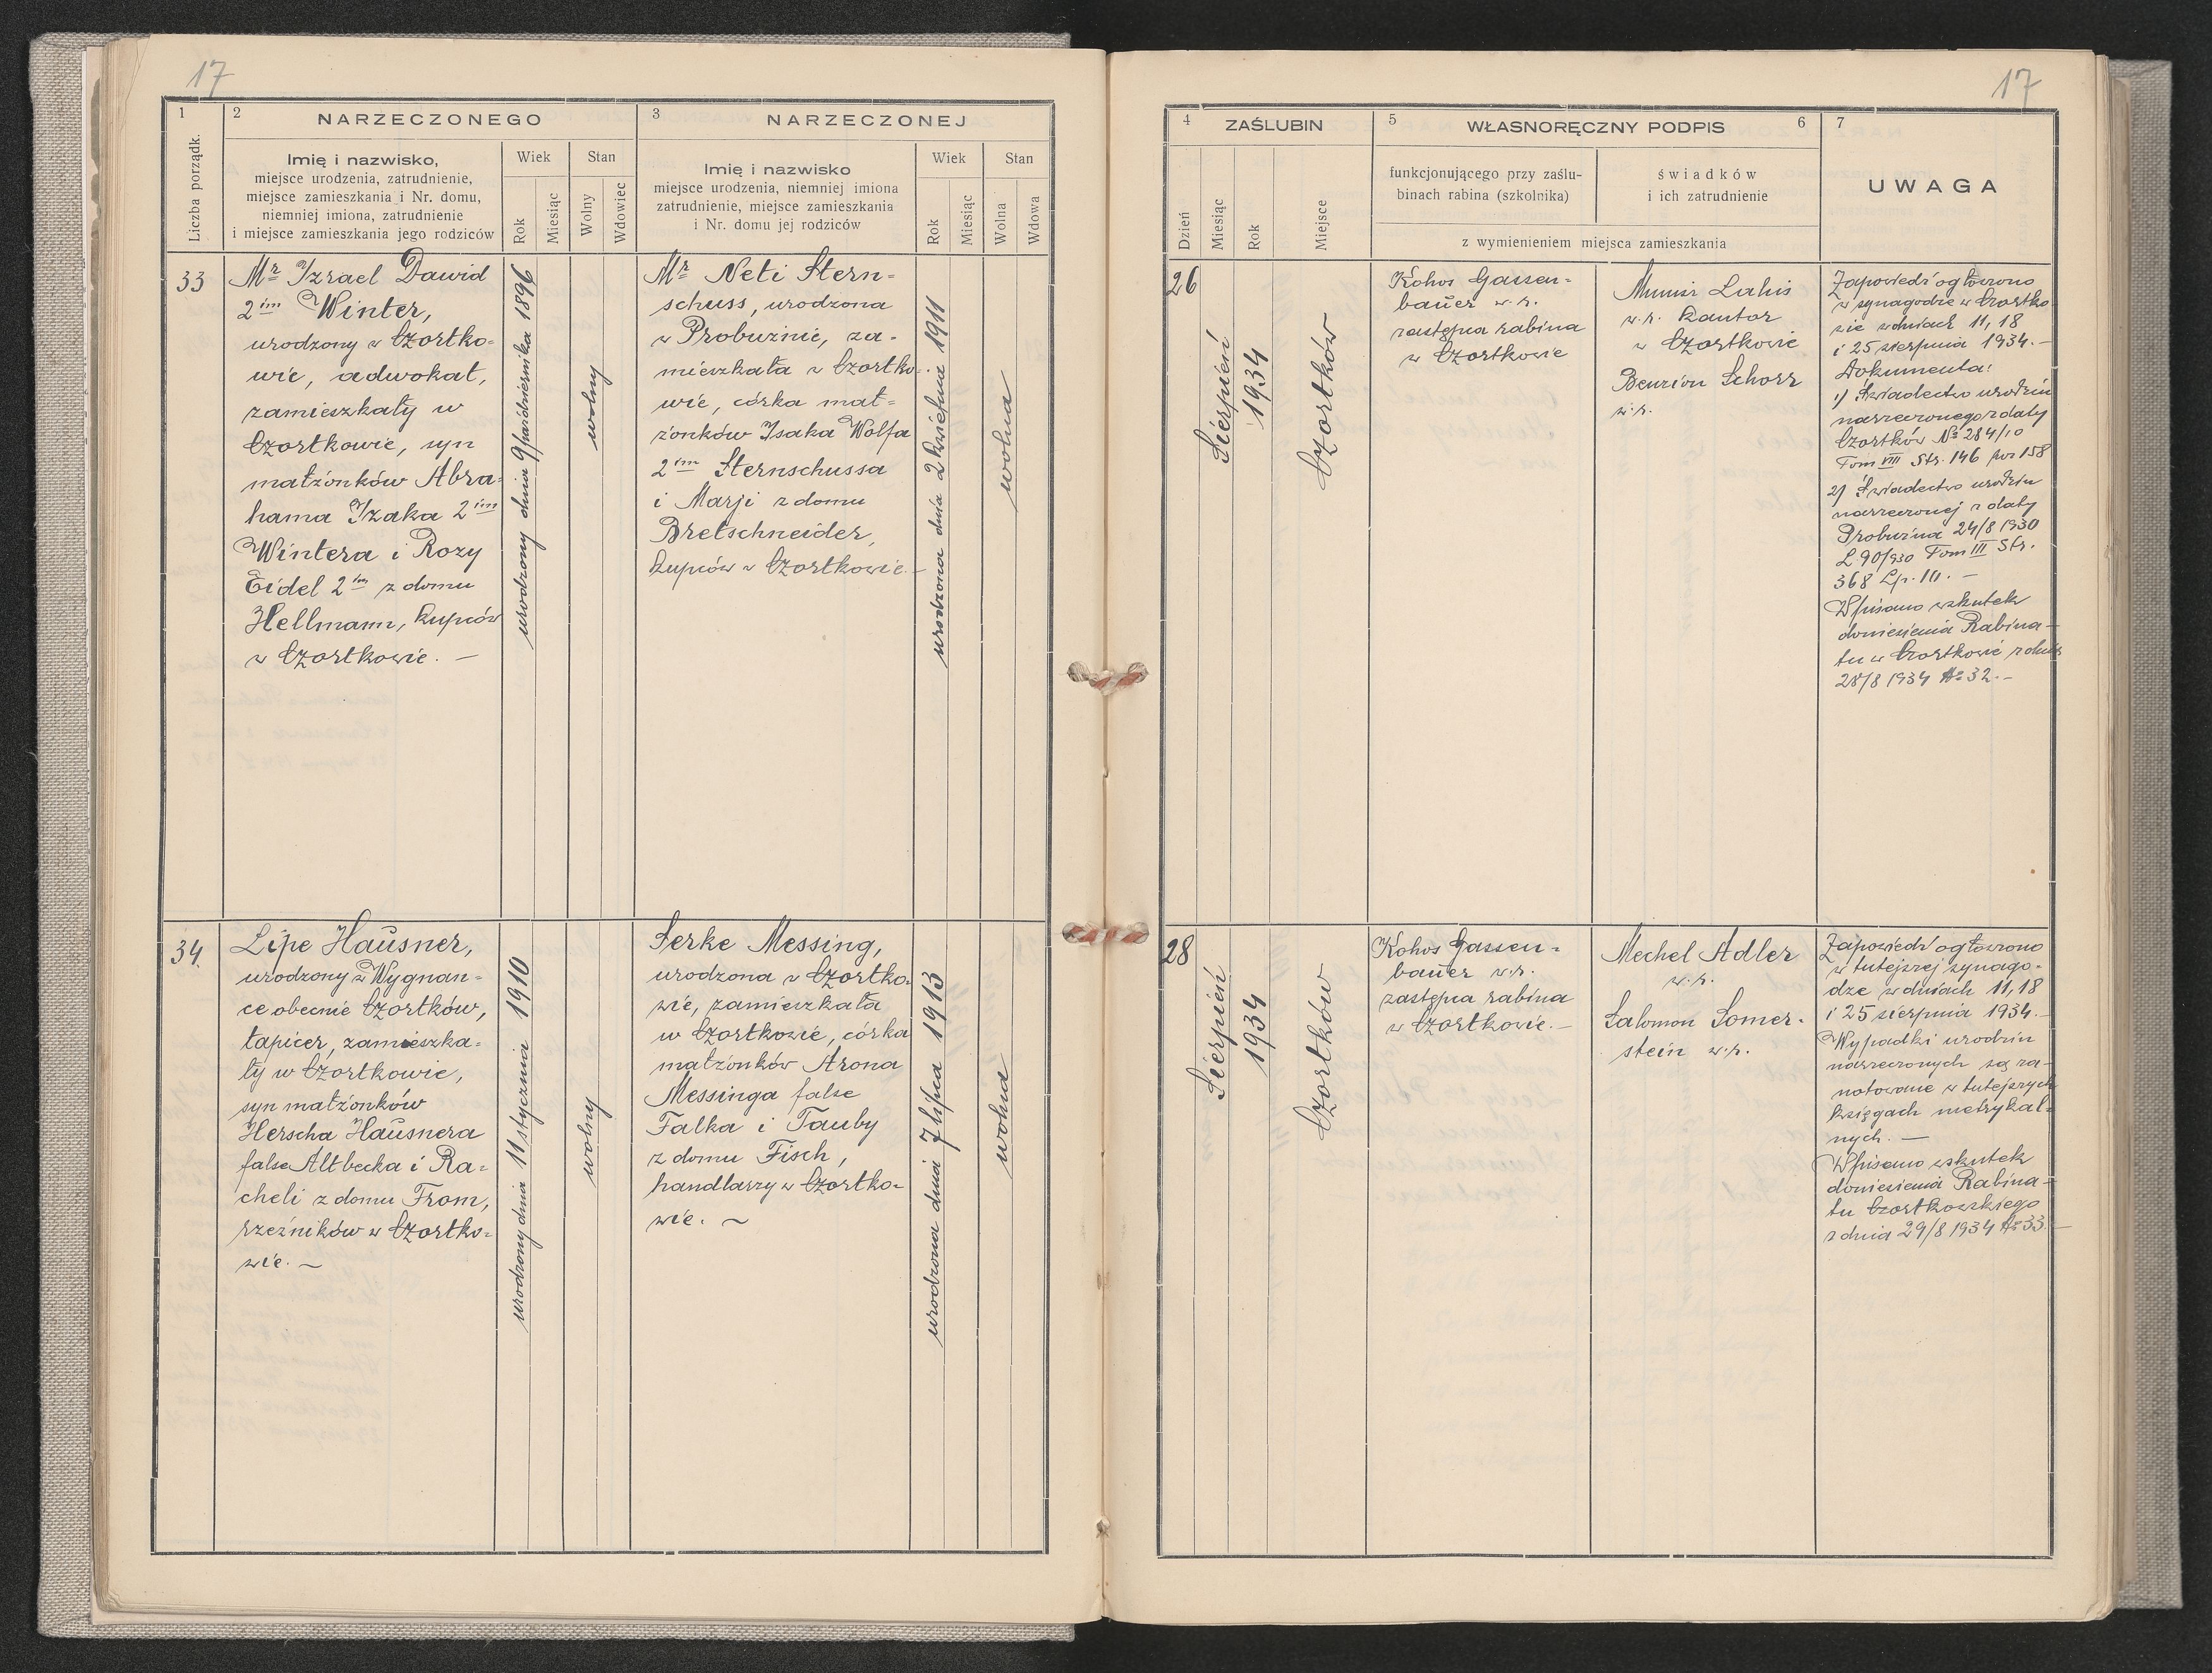 17
1
Liczba porządk.
2
NARZECZONEGO
Imię i nazwisko,
miejsce urodzenia, zatrudnienie,
miejsce zamieszkania i Nr. domu,
niemniej imiona, zatrudnienie
i miejsce zamieszkania jego rodziców
Wiek
Rok
Miesiąc
Stan
Wolny
Wdowiec
3
NARZECZONEJ
Imię i nazwisko
miejsce urodzenia, niemniej imiona
zatrudnienie, miejsce zamieszkania
i Nr. domu jej rodziców
Wiek
Rok
Miesiąc
Stan
Wolna
Wdowa
33
Mr Izrael Dawid
2im Winter,
urodzony w Czortko-
wie, adwokat,
zamieszkały w
Czortkowie, syn
małżonków Abra-
hama Izaka 2im
Wintera i Rozy
Eidel 2im z domu
Hellmann, kupców
w Czortkowie. —
urodzony dnia 9 października 1896
wolny
Mr Neti Stern-
schuss, urodzona
w Probużnie, za-
mieszkała w Czortko-
wie, córka mał-
żonków Isaka Wolfa
2im Sternschussa
i Marji z domu
Bretschneider,
kupców w Czortkowie.—
urodzona dnia 2 kwietnia 1911
wolna
34.
Lipe Haŭsner,
urodzony w Wygnan-
ce obecnie Czortków,
tapicer, zamieszka-
ły w Czortkowie,
syn małżonków
Herscha Haŭsnera
false Altbecka i Ra-
cheli z domu From,
rzeźników w Czortko-
wie. —
urodzony dnia 11 stycznia 1910
wolny
Serke Messing,
urodzona w Czortko-
wie, zamieszkała
w Czortkowie, córka
małżonków Arona
Messinga false
Falka i Tauby
z domu Fisch,
handlarzy w Czortko-
wie. —
urodzona dnia 7 lipca 1913
wolna
17
4
ZAŚLUBIN
Dzień
Miesiąc
Rok
Miejsce
5
WŁASNORĘCZNY PODPIS
6
funkcjonującego przy zaślu-
binach rabina (szkolnika)
świadków
i ich zatrudnienie
z wymienieniem miejsca zamieszkania
7
UWAGA
26
Sierpień
1934
Czortków
Kohos Gassen-
baŭer w.r.
zastępca rabina
w Czortkowie
Munisz Lahis
w.r. kantor
w Czortkowie
Benzion Schorr
w.r.
Zapowiedź ogłoszono
w synagodze w Czortko
wie w dniach 11, 18
i 25 sierpnia 1934.—
Dokumenta:
1) Świadectwo urodzin
narzeczonego z daty
Czortków № 284/10
Tom VIII Str. 146 poz 158
2) Świadectwo urodzin
narzeczonej z daty
Probużna 24/8 1930
L 90/930 Tom III Str.
368 Lp. 10. —
Wpisano wskutek
doniesienia Rabina-
tu w Czortkowie z dnia
28/8 1934 № 32.—
28
Sierpień
1934
Czortków
Kohos Gassen-
baŭer w.r.
zastępca rabina
w Czortkowie.—
Mechel Adler
w.r.
Salomon Somer-
stein w.r.
Zapowiedź ogłoszono
w tutejszej synago-
dze w dniach 11, 18
i 25 sierpnia 1934.—
Wypadki urodzin
narzeczonych są za-
notowane w tutejszych
księgach metrykal-
nych. —
Wpisano wskutek
doniesienia Rabina-
tu Czortkowskiego
z dnia 29/8 1934 № 33.—